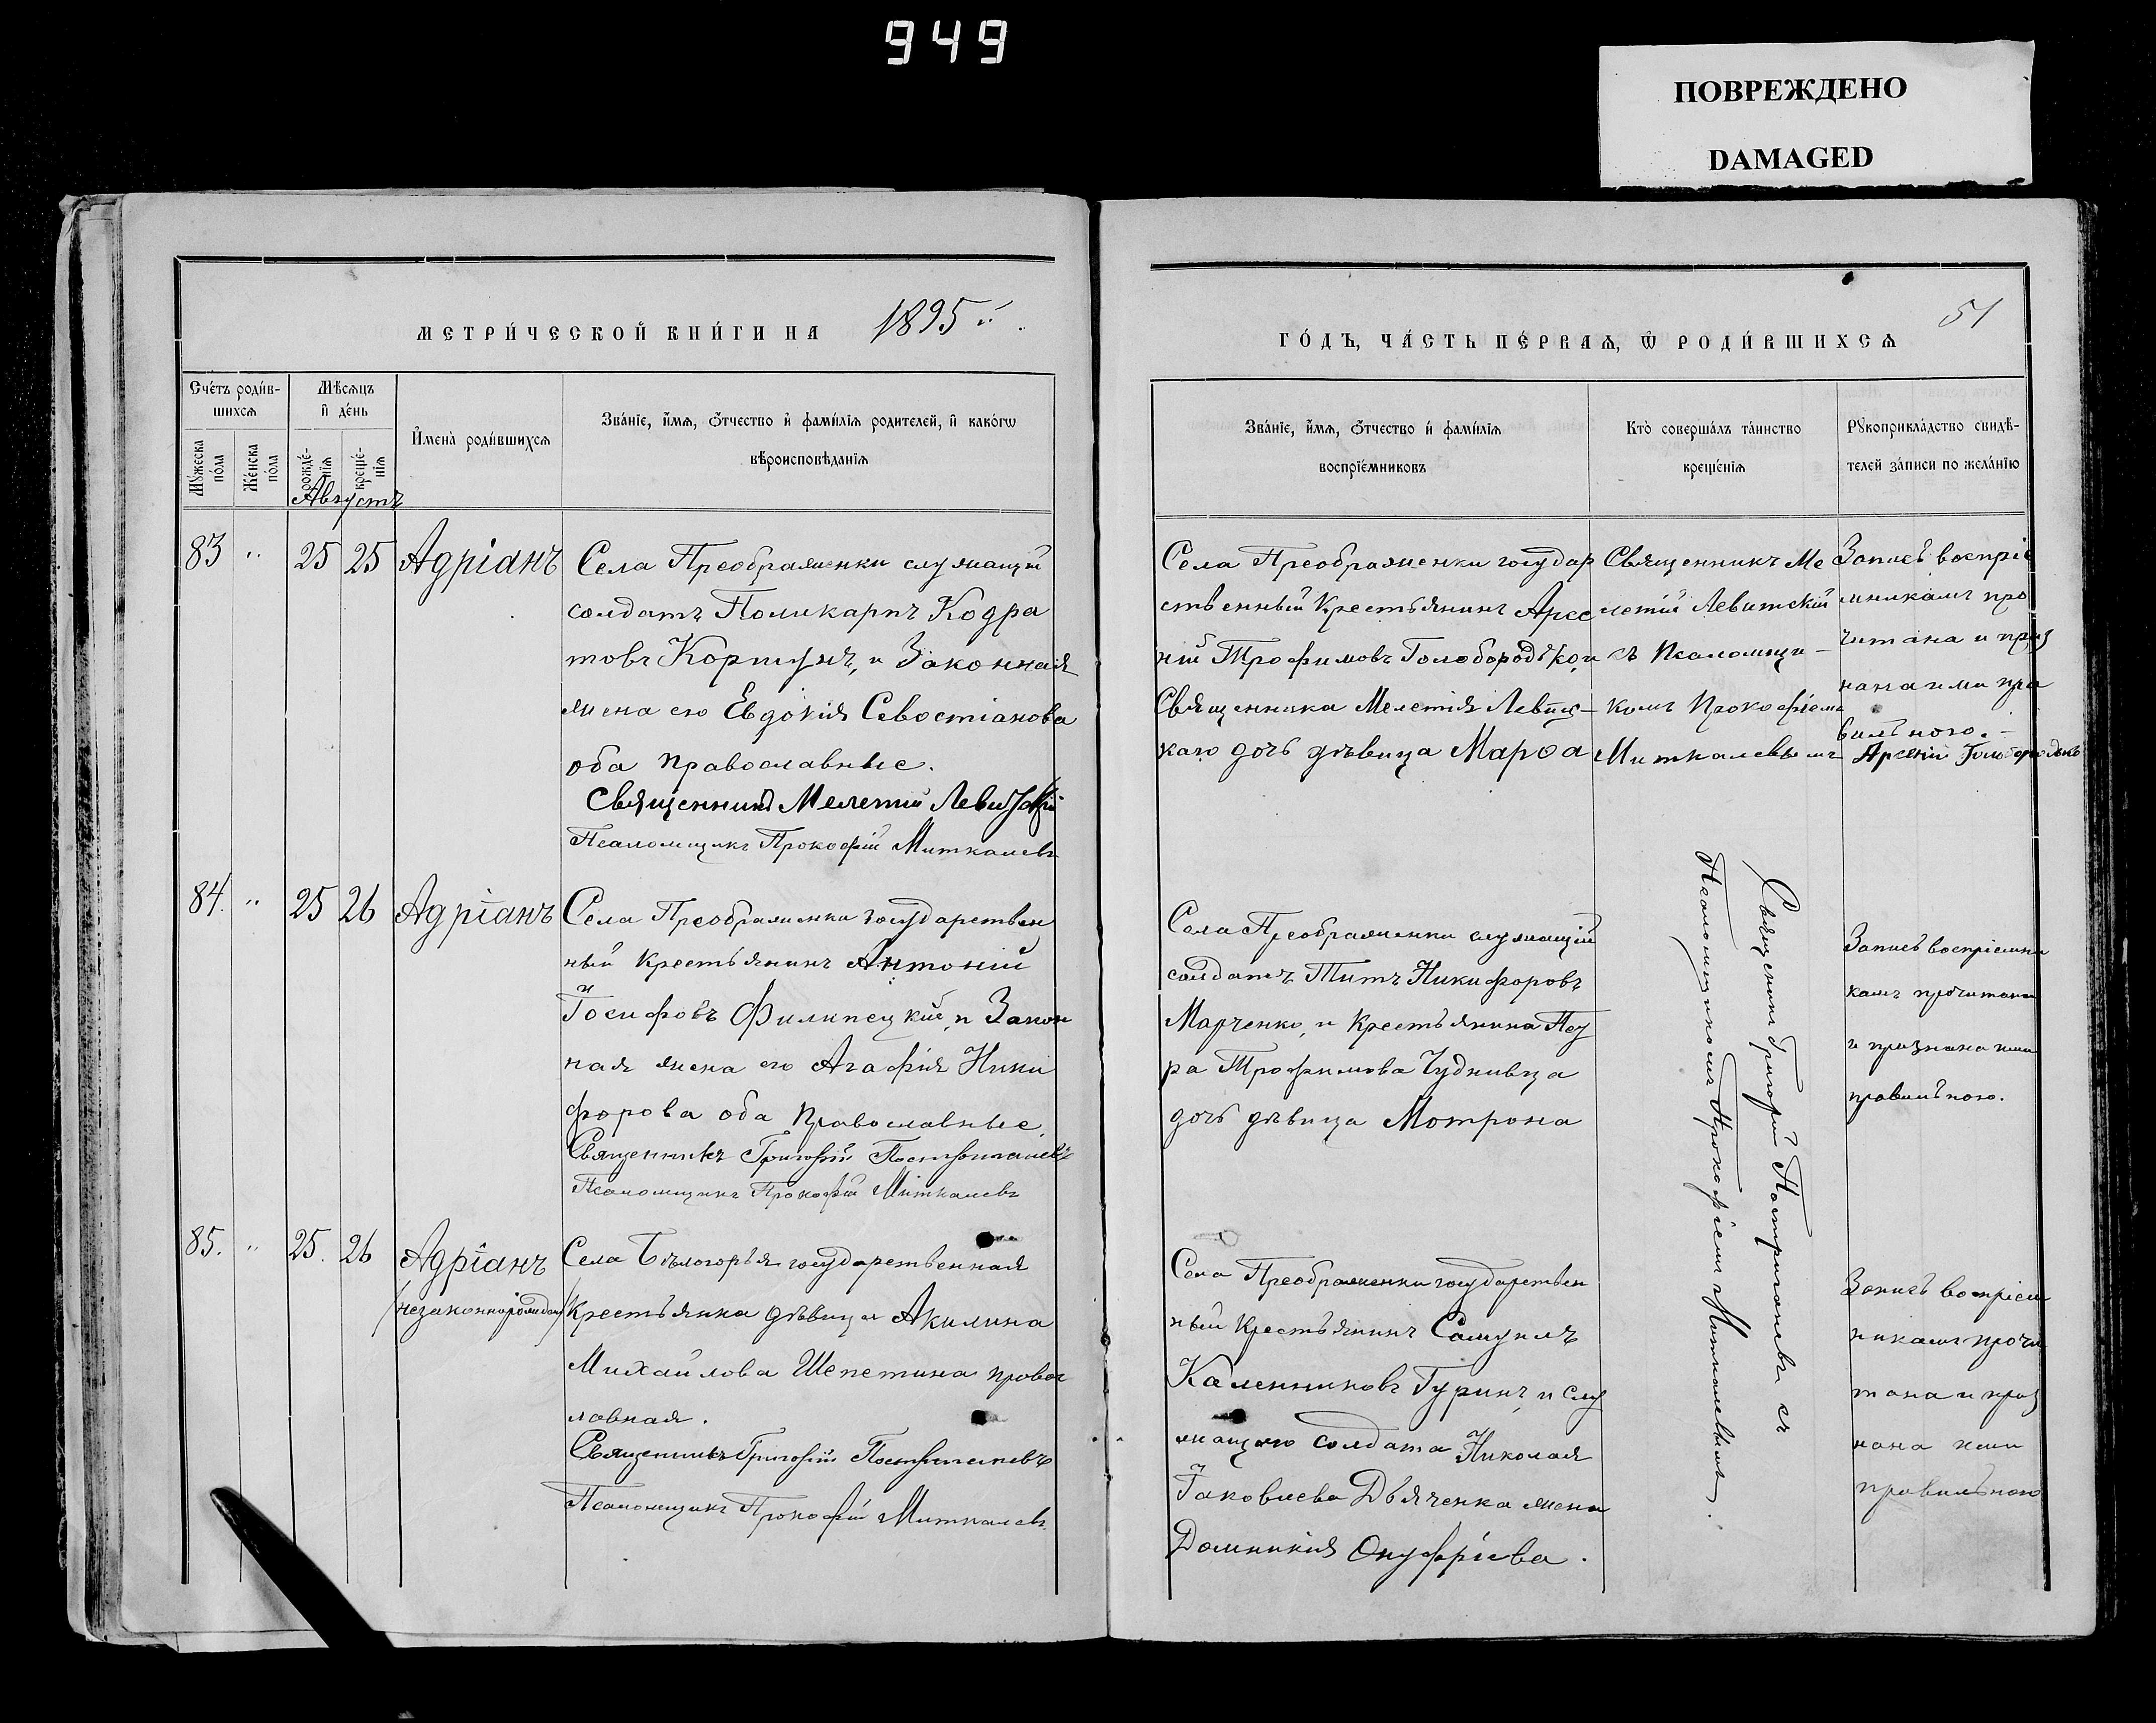 949
ПОВРЕЖДЕНО
DAMAGED
МЕТРИ́ЧЕСКОЙ КНИ́ГИ НА 1895 й.
Сче́тъ роди́в-
шихсѧ
Мѣсѧцъ
и҆ де́нь
И҆мена̀ роди́вшихсѧ
Зва́нїе, и҆́мѧ, ѻ҆́тчество и҆ фами́лїѧ родителей, и҆ како́гѡ
вѣроисповѣданїѧ
Мꙋ́жеска
по́ла
Же́нска
по́ла
рожде́-
нїѧ
креще́-
нїѧ
Августъ
83 " 25 25 Адріанъ
Села Преображенки служащій
солдатъ Поликарпъ Кодра
товъ Коршунъ, и Законная
жена его Евдокія Севостіанова
оба православные.
Священникъ Мелетій Левитскій
Псаломщикъ Прокофій Миткалевъ
84. " 25 26 Адріанъ
Села Преображенки государствен
ный Крестьянинъ Антоній
Іосифовъ Филипецкій, и Закон
ная жена его Агафія Ники
форова оба Православные.
Священникъ Григорій Постригачевъ
Псаломщикъ Прокофій Миткалевъ
85. " 25. 26 Адріанъ
/незаконнорожден/
Села Бѣлогорья государственная
Крестьянка дѣвица Акилина
Михайлова Шепетина правос
лавная.
Священникъ Григорій Постригачевъ
Псаломщикъ Прокофій Миткалевъ.
51
ГО́ДЪ, ЧА́СТЬ ПЕ́РВАѦ, Ѡ҆ РОДИ́ВШИХСѦ
Зва́нїе, и҆́мѧ, ѻ҆́тчество и҆ фами́лїѧ
воспрїе́мниковъ
Кто̀ соверша́лъ та́инство
креще́нїѧ
Рꙋкоприкла́дство свидѣ́-
телей за́писи по жела́нїю
Села Преображенки государ
ственный Крестьянинъ Арсе
ній Трофимовъ Голобородько, и
Священника Мелетія Левит-
каго дочь дѣвица Марѳа
Священникъ Ме
летій Левитскій
съ Псаломщи-
комъ Прокофіемъ
Миткалевымъ
Запись воспріе
мникамъ про
читана и приз
нана ими пра
вильною.-
Арсеній Голобородько
Села Преображенки служащій
солдатъ Титъ Никифоровъ
Марченко, и Крестьянина Пет
ра Трофимова Чудкивца
дочь дѣвица Мотрона
Священникъ Григорій Постригачевъ съ
Псаломщикомъ Прокофіемъ Миткалевымъ.
Запись воспріемни
камъ прочитана
и признана ими
правильною.
Села Преображенки государствен
ный Крестьянинъ Самуилъ
Каленниковъ Гуринъ, и слу
жащаго солдата Николая
Іаковлева Дьяченка жена
Домникія Онуфріева.
Запись воспріем
никамъ прочи
тана и приз
нана ими
правильною